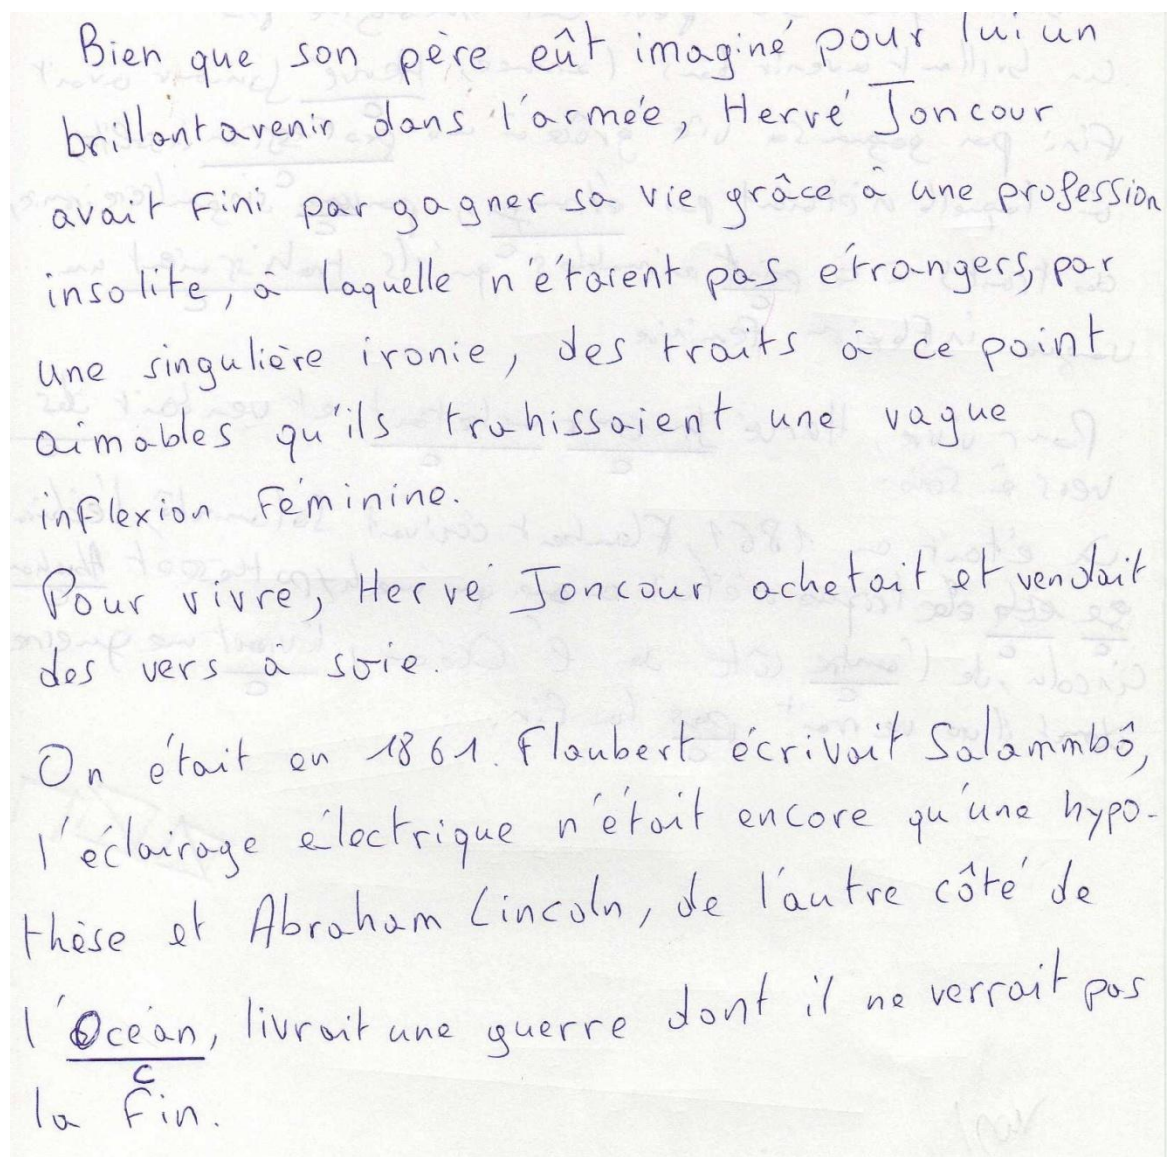 Bien que son père eût imaginé pour lui un
brillant avenir dans l'armée, Hervé Joncour
avait fini par gagner sa vie grâce à une profession
insolite, à laquelle n'étaient pas étrangers, par
une singulière ironie, des traits à ce point
aimables qu'ils trahissaient une vague
inflexion féminine.
Pour vivre, Hervé Joncour achetait et vendait
des vers à soie.
On était en 1861. Flaubert écrivait Salammbô,
l'éclairage électrique n'était encore qu'une hypo-
thèse et Abraham Lincoln, de l'autre côté de
l'Océan, livrait une guerre dont il ne verrait pas
c
la fin.